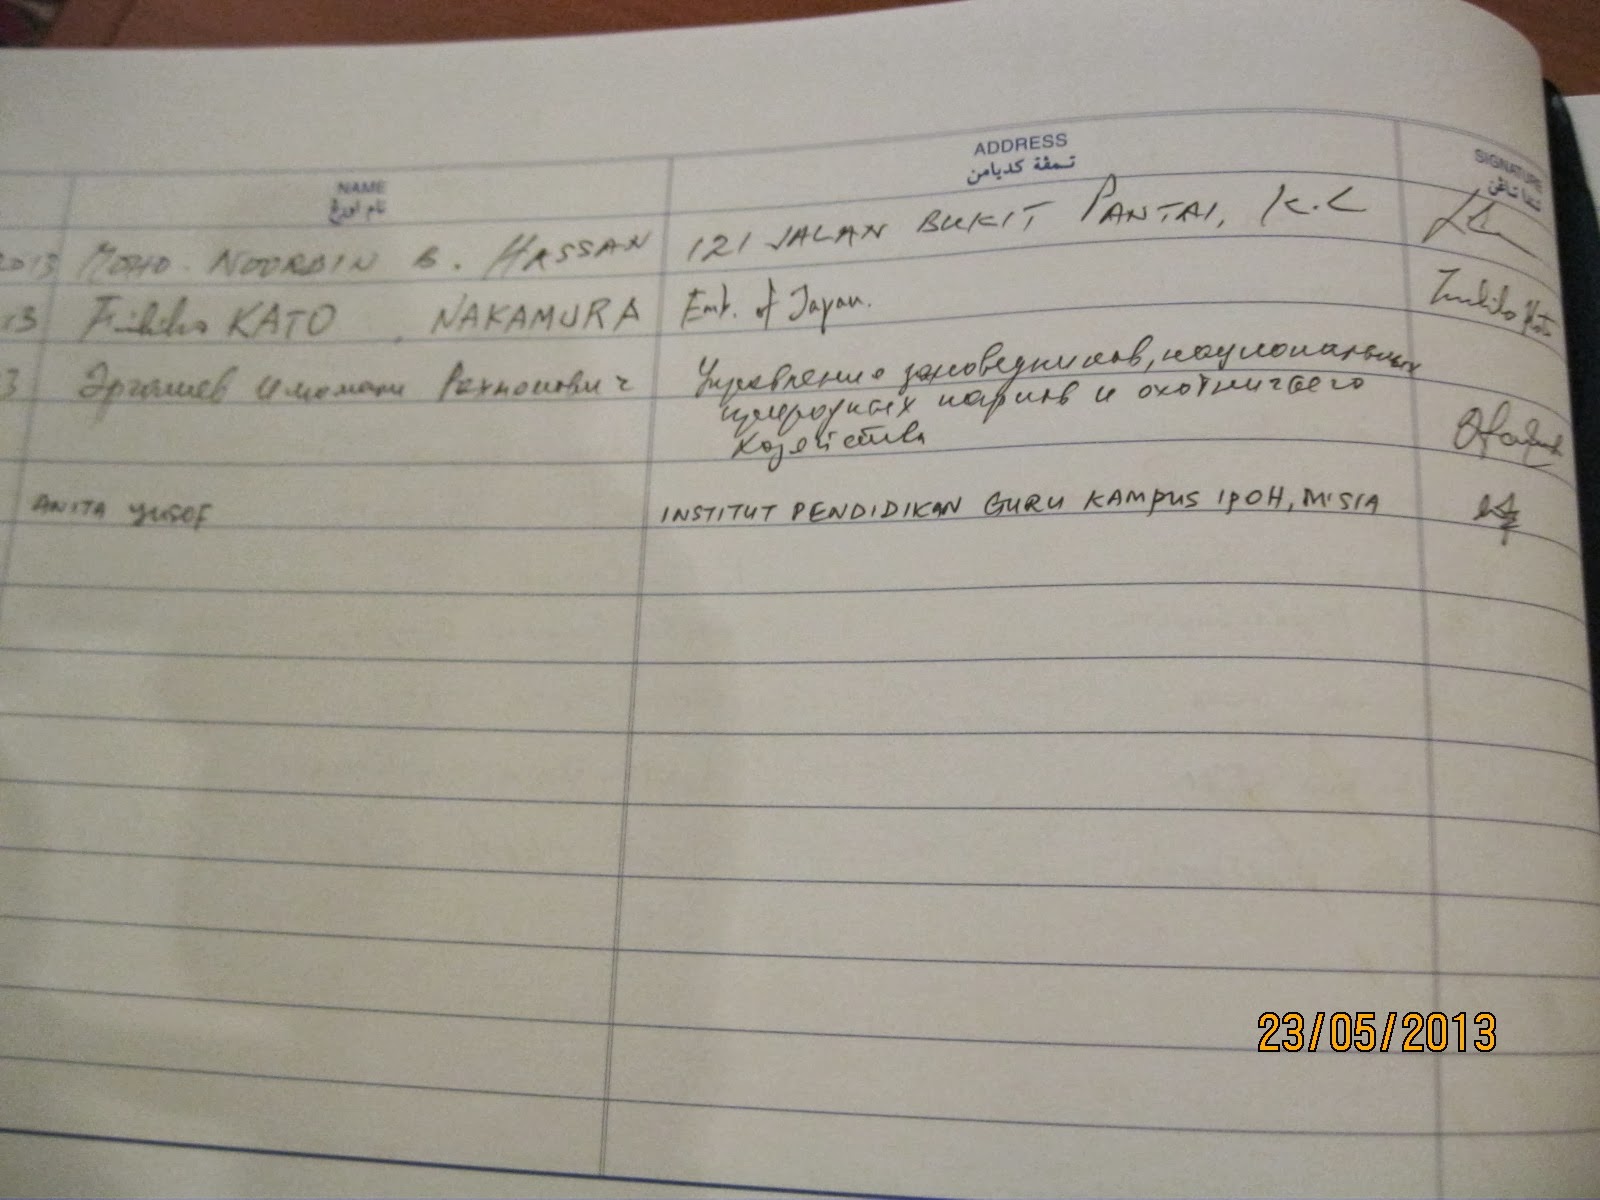 NAME
نام اورڠ
ADDRESS
تمڤة كديامن
SIGNATURE
2013 MOHD. NOORDIN B. HASSAN 121 JALAN BUKIT PANTAI, K.L
13 KATO, NAKAMURA Emb. of Japan.
3 Эргашев Рахмонович Управление заповедников, национальных
природных парков и охотничьего
хозяйства
ANITA YUSOF INSTITUT PENDIDIKAN GURU KAMPUS IPOH, M'SIA
23/05/2013